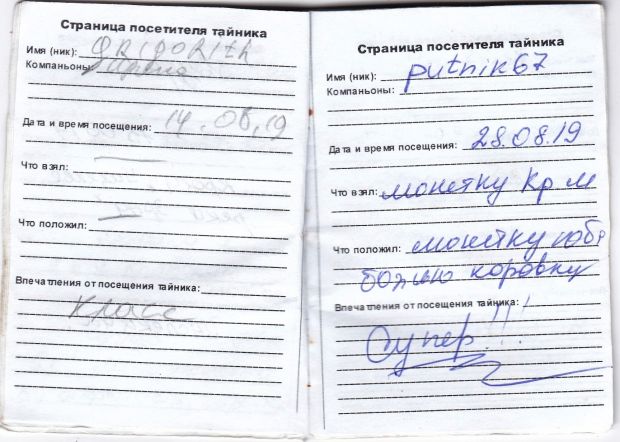 Страница посетителя тайника
Имя (ник): GRIGORITH
Компаньоны:
Дата и время посещения: 14.08.19
Что взял:
Что положил:
Впечатления от посещения тайника:
Класс
Страница посетителя тайника
Имя (ник): putnik67
Компаньоны:
Дата и время посещения: 28.08.19
Что взял: монетку Кр М
Что положил: монетку
божью коровку
Впечатления от посещения тайника:
Супер!!!